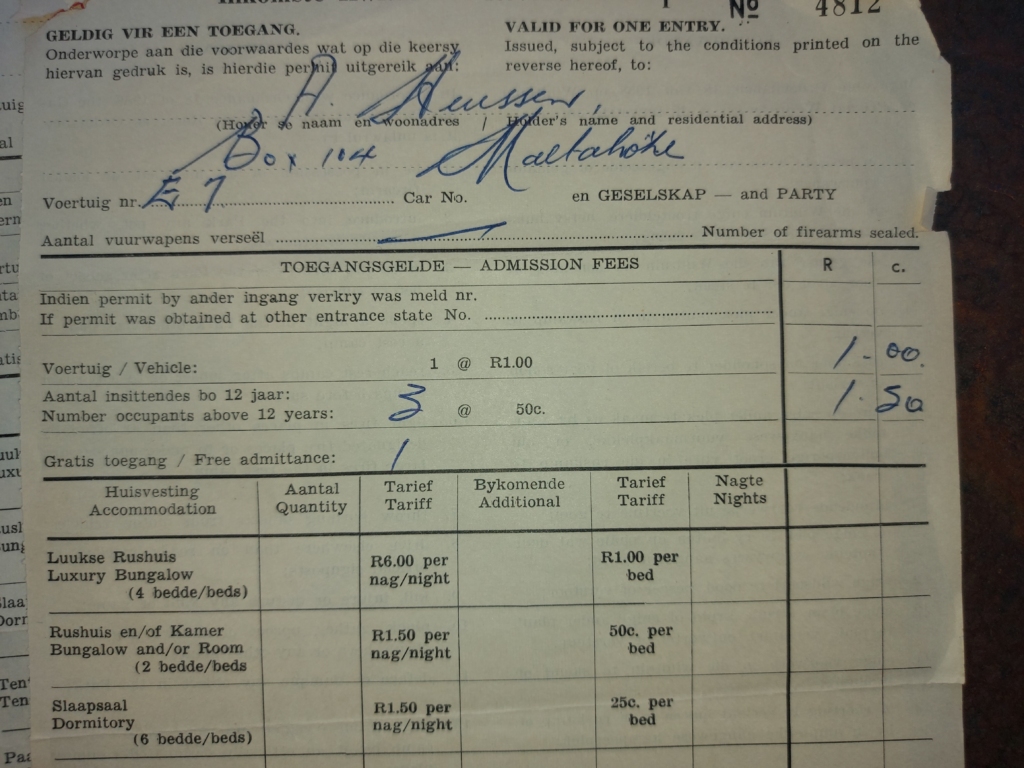 No 4812
GELDIG VIR EEN TOEGANG.
Onderworpe aan die voorwaardes wat op die keersy
hiervan gedruk is, is hierdie permit uitgereik aan:
VALID FOR ONE ENTRY.
Issued, subject to the conditions printed on the
reverse hereof, to:
A. Henssen,
(Houer se naam en woonadres / Holder's name and residential address)
Box 104 Maltahöhe
Voertuig nr. E 7 Car No. en GESELSKAP — and PARTY
Aantal vuurwapens verseël Number of firearms sealed.
TOEGANGSGELDE — ADMISSION FEES R c.
Indien permit by ander ingang verkry was meld nr.
If permit was obtained at other entrance state No.
Voertuig / Vehicle: 1 @ R1.00 1 - 00.
Aantal insittendes bo 12 jaar:
Number occupants above 12 years: 3 @ 50c. 1. 50
Gratis toegang / Free admittance: 1
Huisvesting Aantal Tarief Bykomende Tarief Nagte
Accommodation Quantity Tariff Additional Tariff Nights
Luukse Rushuis R6.00 per R1.00 per
Luxury Bungalow nag/night bed
(4 bedde/beds)
Rushuis en/of Kamer R1.50 per 50c. per
Bungalow and/or Room nag/night bed
(2 bedde/beds
Slaapsaal R1.50 per 25c. per
Dormitory nag/night bed
(6 bedde/beds)